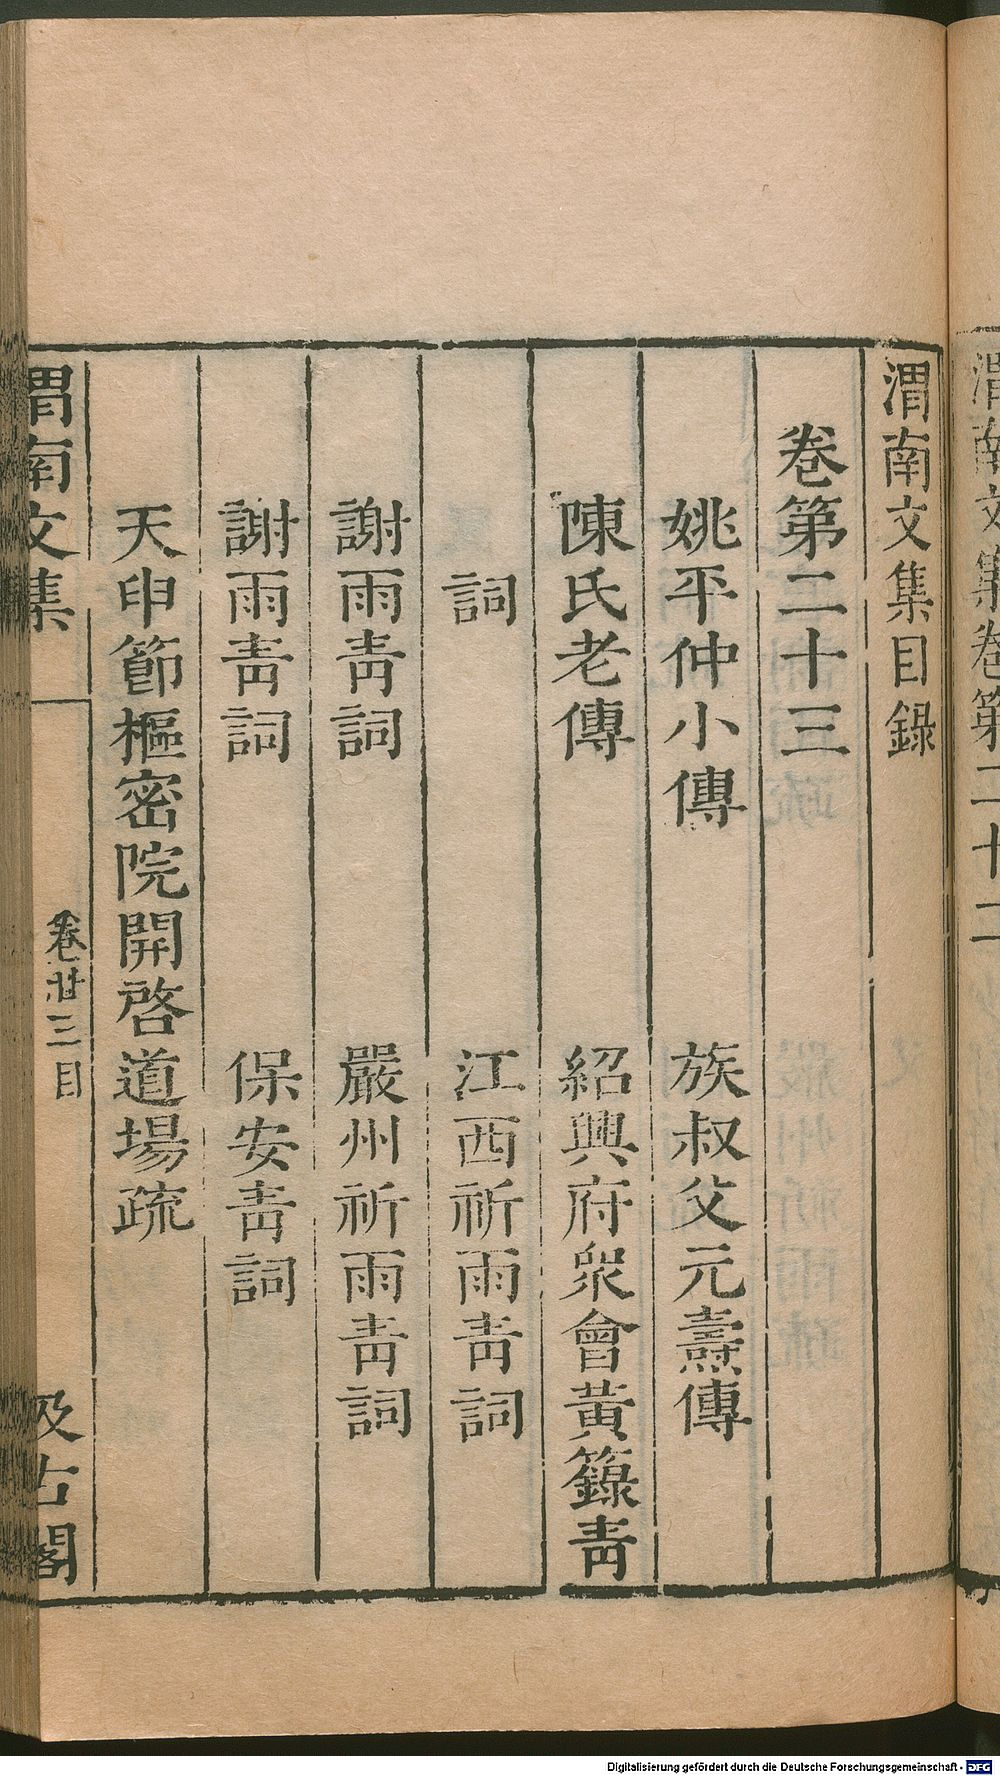 渭南文集目錄
卷第二十三
姚平仲小傳　族叔父元燾傳
陳氏老傳　紹興府眾會黃籙青
詞　江西祈雨青詞
謝雨青詞　嚴州祈雨青詞
謝雨青詞　保安青詞
天申節樞密院開啓道場疏
渭南文集　卷廿三目　汲古閣
渭南文集卷第二十二
Digitalisierung gefördert durch die Deutsche Forschungsgemeinschaft - DFG